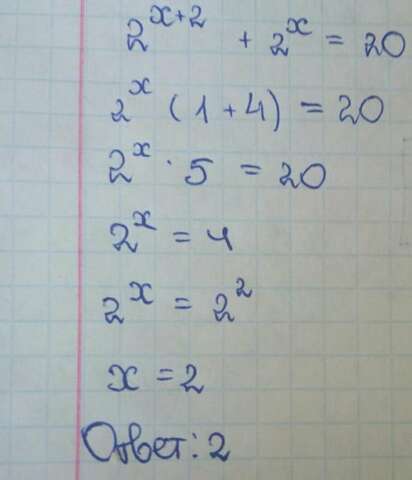 2^{x+2} + 2^x = 20
2^x (1+4) = 20
2^x · 5 = 20
2^x = 4
2^x = 2^2
x = 2
Ответ: 2